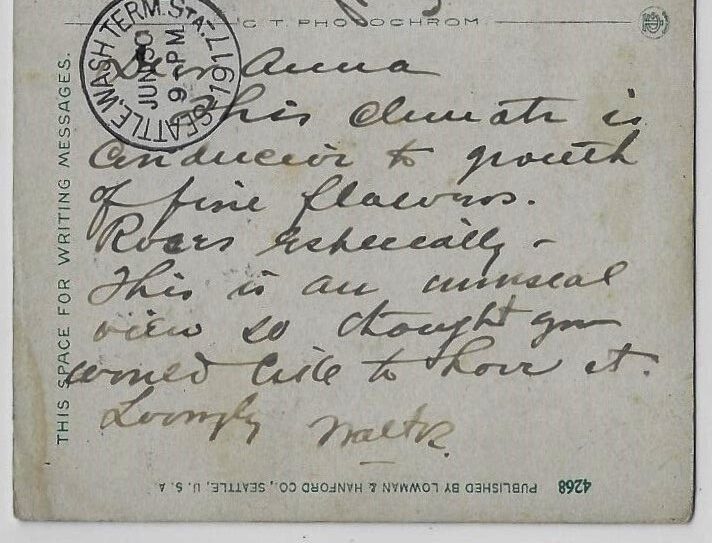 C T. PHOTOCHROM
SEATTLE, WASH. TERM. STA.
JUN 30
9 PM
1917
THIS SPACE FOR WRITING MESSAGES.
Dear Anna
This climate is
conducive to growth
of fine flowers.
Roses especially -
This is an unusual
view so thought you
would like to have it.
Lovingly Walter.
4268 PUBLISHED BY LOWMAN & HANFORD CO., SEATTLE, U. S. A